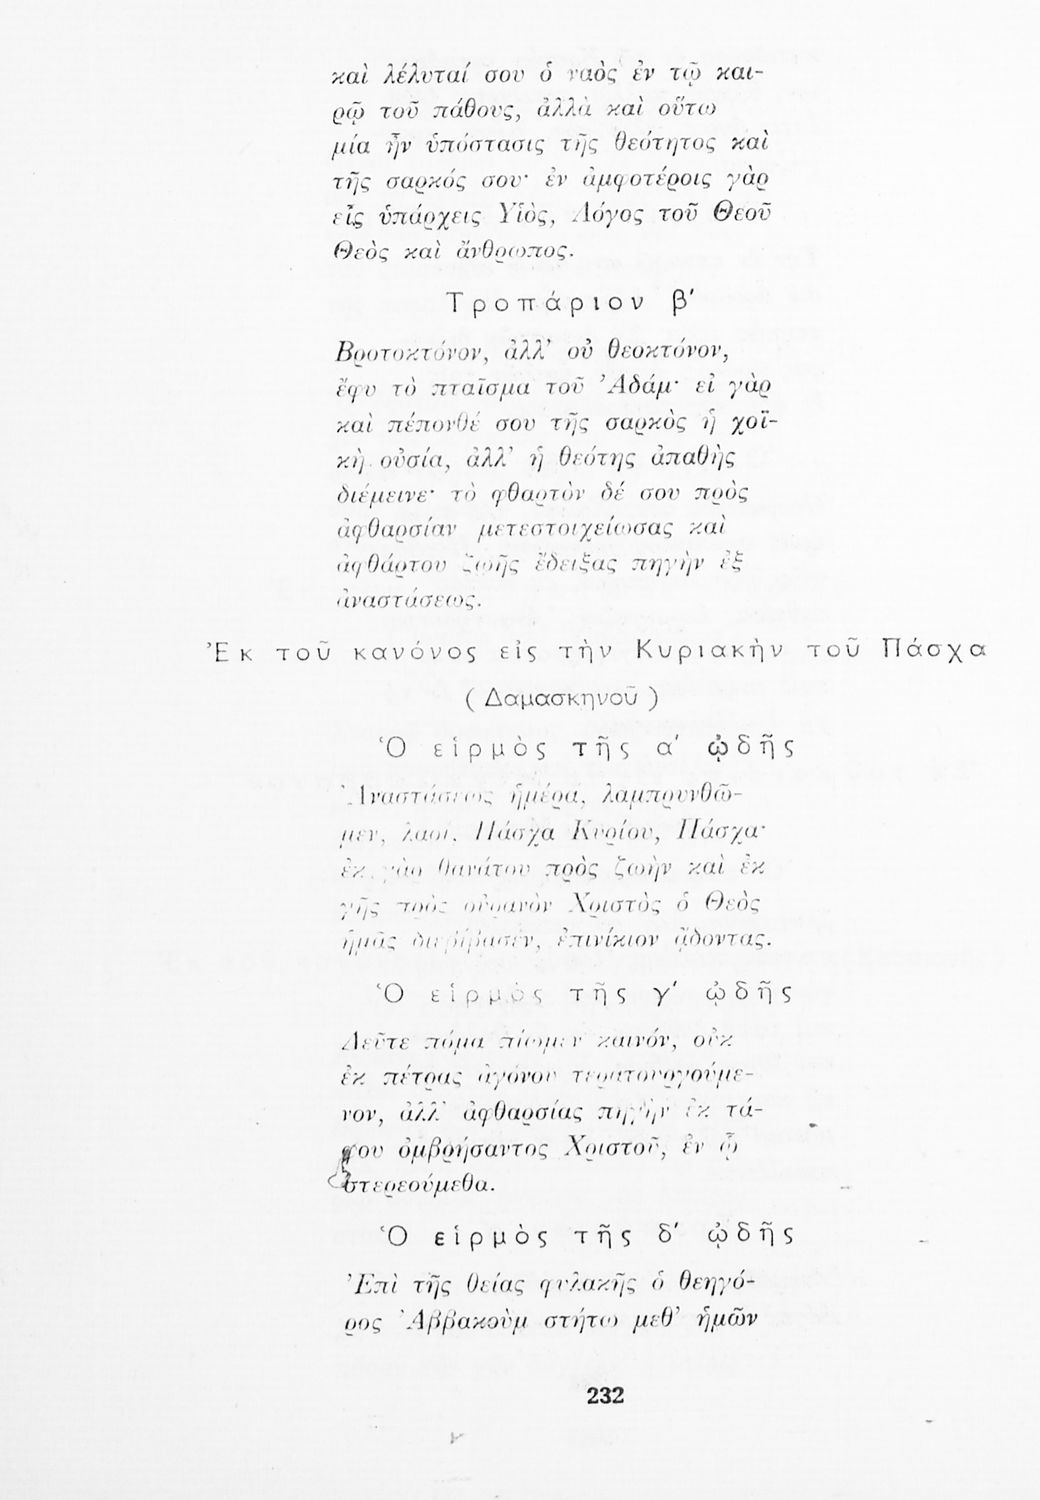 καὶ λέλυταί σου ὁ ναὸς ἐν τῷ και-
ρῷ τοῦ πάθους, ἀλλὰ καὶ οὕτω
μία ἦν ὑπόστασις τῆς θεότητος καὶ
τῆς σαρκός σου· ἐν ἀμφοτέροις γὰρ
εἷς ὑπάρχεις Υἱὸς, Λόγος τοῦ Θεοῦ
Θεὸς καὶ ἄνθρωπος.
Τροπάριον β′
Βροτοκτόνον, ἀλλ’ οὐ θεοκτόνον,
ἔφυ τὸ πταῖσμα τοῦ ’Αδάμ· εἰ γὰρ
καὶ πέπονθέ σου τῆς σαρκὸς ἡ χοϊ-
κὴ οὐσία, ἀλλ’ ἡ θεότης ἀπαθὴς
διέμεινε· τὸ φθαρτὸν δέ σου πρὸς
ἀφθαρσίαν μετεστοιχείωσας καὶ
ἀφθάρτου ζωῆς ἔδειξας πηγὴν ἐξ
ἀναστάσεως.
’Εκ τοῦ κανόνος εἰς τὴν Κυριακὴν τοῦ Πάσχα
(Δαμασκηνοῦ)
Ὁ εἱρμὸς τῆς α′ ᾠδῆς
’Αναστάσεως ἡμέρα, λαμπρυνθῶ-
μεν, λαοί. Πάσχα Κυρίου, Πάσχα·
ἐκ γὰρ θανάτου πρὸς ζωὴν καὶ ἐκ
γῆς πρὸς οὐρανὸν Χριστὸς ὁ Θεὸς
ἡμᾶς διεβίβασεν, ἐπινίκιον ᾄδοντας.
Ὁ εἱρμὸς τῆς γ′ ᾠδῆς
Δεῦτε πόμα πίωμεν καινόν, οὐκ
ἐκ πέτρας ἀγόνου τερατουργούμε-
νον, ἀλλ’ ἀφθαρσίας πηγὴν ἐκ τά-
φου ὀμβρήσαντος Χριστοῦ, ἐν ᾧ
στερεούμεθα.
Ὁ εἱρμὸς τῆς δ′ ᾠδῆς
’Επὶ τῆς θείας φυλακῆς ὁ θεηγό-
ρος ’Αββακοὺμ στήτω μεθ’ ἡμῶν
232